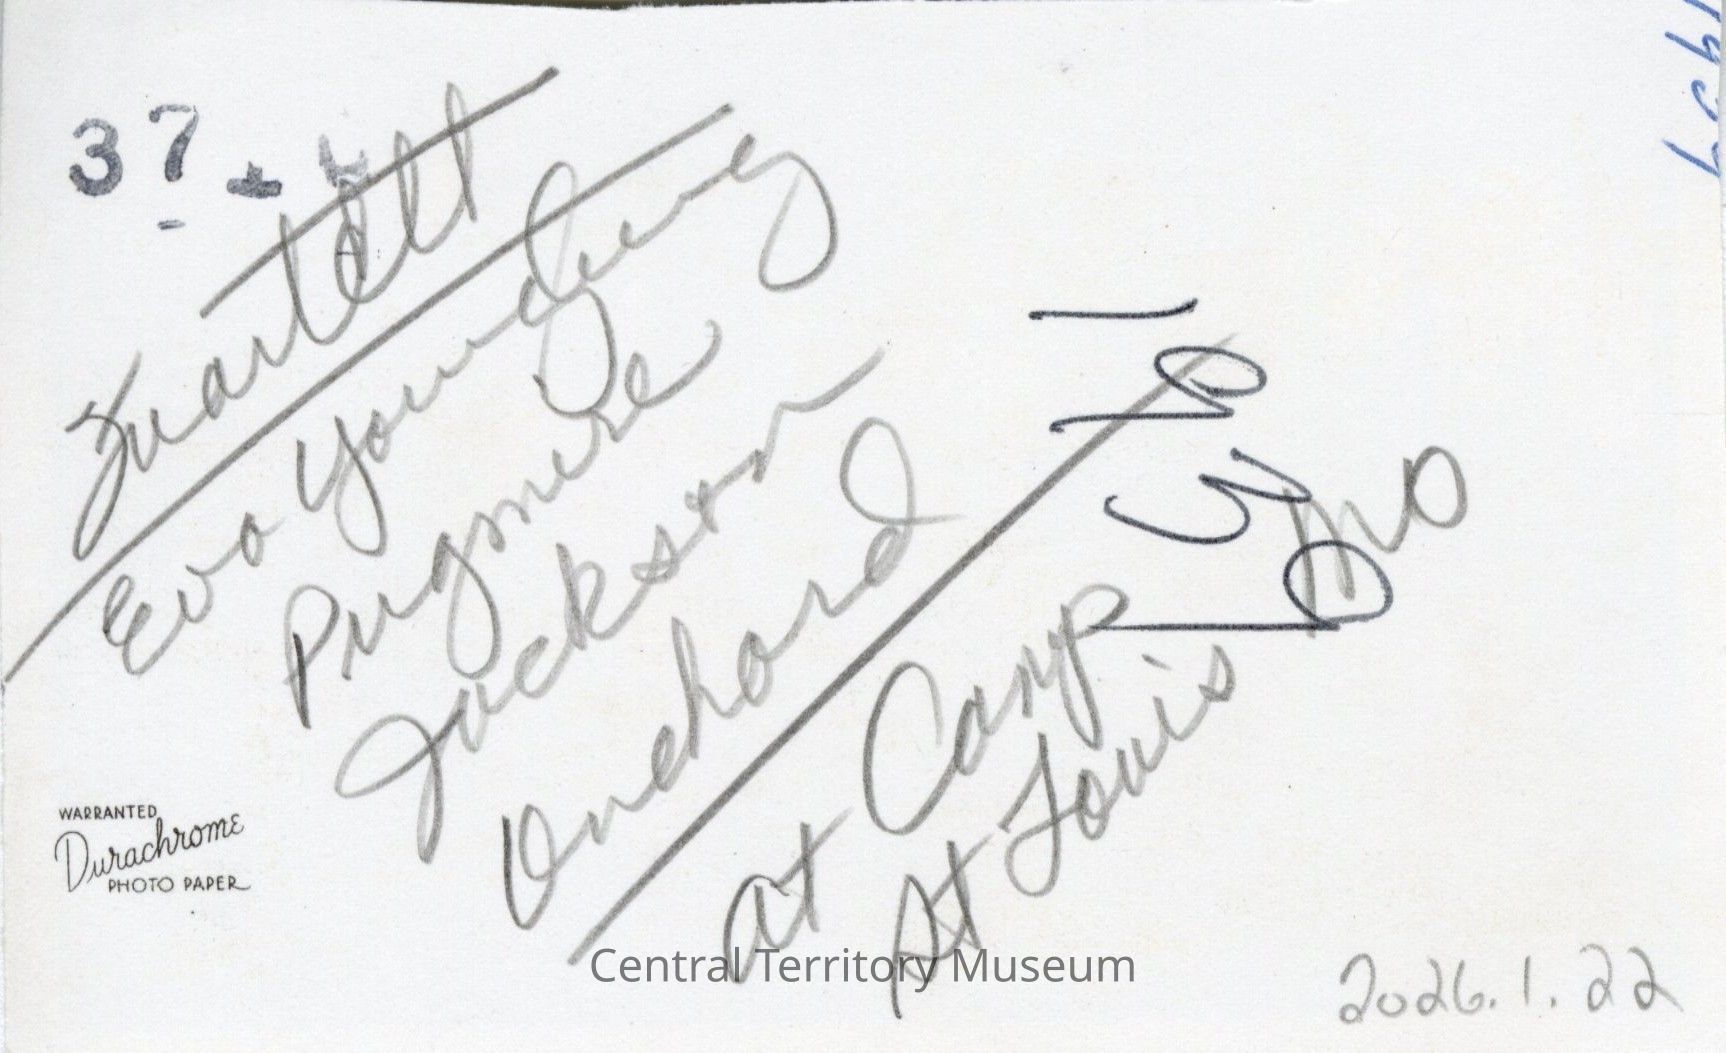 37
Quartett
Eva Youngberg
Pugmire
Jackson
Orchard
at Camp
St Louis
Mo
WARRANTED
Durachrome
PHOTO PAPER
Central Territory Museum
2026.1.22